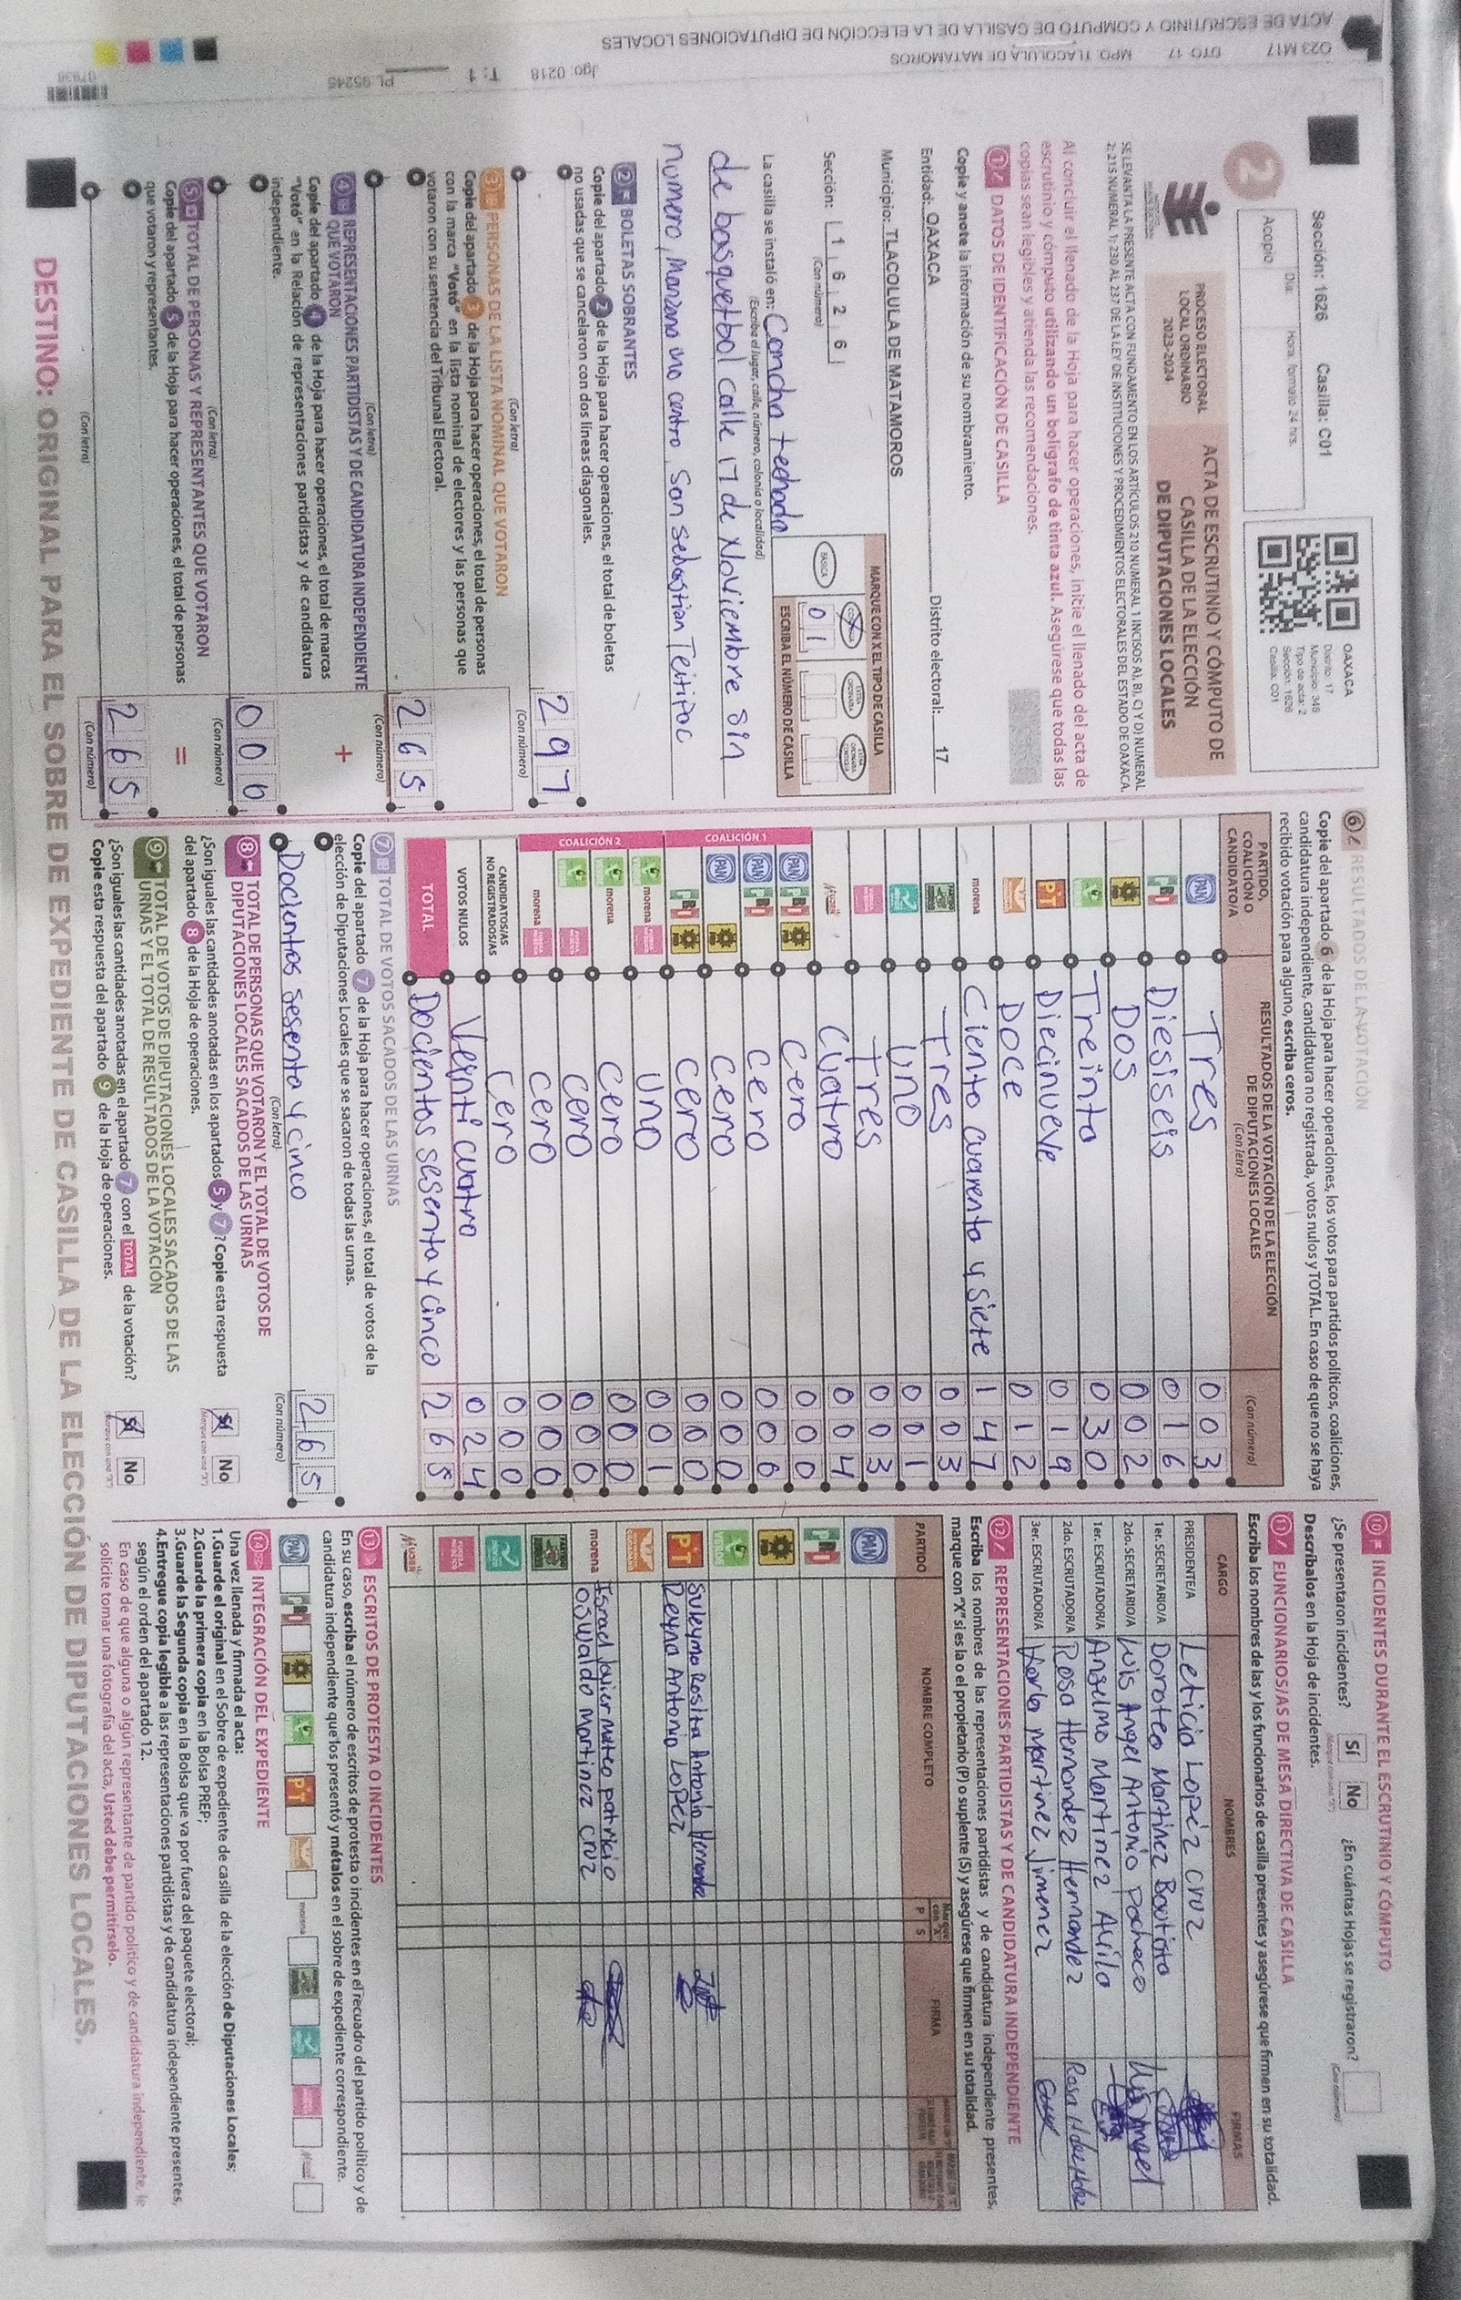 Sección: 1626 Casilla: C01
Día: Hora, formato 24 hrs.
2 Acopio
OAXACA
Distrito: 17
Municipio: 348
Tipo de acta: 2
Sección: 1626
Casilla: C01
PROCESO ELECTORAL
LOCAL ORDINARIO
2023-2024
ACTA DE ESCRUTINIO Y CÓMPUTO DE
CASILLA DE LA ELECCIÓN
DE DIPUTACIONES LOCALES
SE LEVANTA LA PRESENTE ACTA CON FUNDAMENTO EN LOS ARTÍCULOS 210 NUMERAL 1 INCISOS A), B), C) Y D) NUMERAL
2; 215 NUMERAL 1; 230 AL 237 DE LA LEY DE INSTITUCIONES Y PROCEDIMIENTOS ELECTORALES DEL ESTADO DE OAXACA.
Al concluir el llenado de la Hoja para hacer operaciones, inicie el llenado del acta de
escrutinio y cómputo utilizando un bolígrafo de tinta azul. Asegúrese que todas las
copias sean legibles y atienda las recomendaciones.
1 DATOS DE IDENTIFICACIÓN DE CASILLA
Copie y anote la información de su nombramiento.
Entidad: OAXACA Distrito electoral: 17
Municipio: TLACOLULA DE MATAMOROS
Sección: 1 6 2 6
(Con número)
MARQUE CON X EL TIPO DE CASILLA
BÁSICA
0 1
ESCRIBA EL NÚMERO DE CASILLA
La casilla se instaló en: Concha techada
(Escriba el lugar, calle, número, colonia o localidad)
de basquetbol calle 17 de Noviembre sin
numero, Manzana uno centro, San Sebastian Teitipac
2 BOLETAS SOBRANTES
Copie del apartado 2 de la Hoja para hacer operaciones, el total de boletas
no usadas que se cancelaron con dos líneas diagonales.
297
(Con letra) (Con número)
3 PERSONAS DE LA LISTA NOMINAL QUE VOTARON
Copie del apartado 3 de la Hoja para hacer operaciones, el total de personas
con la marca "Votó" en la lista nominal de electores y las personas que
votaron con su sentencia del Tribunal Electoral.
265
(Con letra) (Con número)
4 REPRESENTACIONES PARTIDISTAS Y DE CANDIDATURA INDEPENDIENTE
QUE VOTARON
+
Copie del apartado 4 de la Hoja para hacer operaciones, el total de marcas
"Votó" en la Relación de representaciones partidistas y de candidatura
independiente.
000
(Con letra) (Con número)
5 TOTAL DE PERSONAS Y REPRESENTANTES QUE VOTARON
=
Copie del apartado 5 de la Hoja para hacer operaciones, el total de personas
que votaron y representantes.
265
(Con letra) (Con número)
6 RESULTADOS DE LA VOTACIÓN
Copie del apartado 6 de la Hoja para hacer operaciones, los votos para partidos políticos, coaliciones,
candidatura independiente, candidatura no registrada, votos nulos y TOTAL. En caso de que no se haya
recibido votación para alguno, escriba ceros.
PARTIDO,
COALICIÓN O
CANDIDATO/A
RESULTADOS DE LA VOTACIÓN DE LA ELECCIÓN
DE DIPUTACIONES LOCALES
(Con letra) (Con número)
PAN Tres 003
PRI Diesiseis 016
PRD Dos 002
Treinta 030
PT Diecinueve 019
Doce 012
morena Ciento cuarenta y siete 147
Tres 003
uno 001
Tres 003
Mujer Cuatro 004
COALICIÓN 1
PAN PRI PRD Cero 000
PAN PRI cero 000
PAN PRD cero 000
PRI PRD cero 000
COALICIÓN 2
morena uno 001
morena cero 000
cero 000
morena cero 000
CANDIDATOS/AS
NO REGISTRADOS/AS cero 000
VOTOS NULOS Veinti cuatro 024
TOTAL Docientos sesenta y cinco 265
7 TOTAL DE VOTOS SACADOS DE LAS URNAS
Copie del apartado 7 de la Hoja para hacer operaciones, el total de votos de la
elección de Diputaciones Locales que se sacaron de todas las urnas.
Docientos sesenta y cinco 265
(Con letra) (Con número)
8 TOTAL DE PERSONAS QUE VOTARON Y EL TOTAL DE VOTOS DE
DIPUTACIONES LOCALES SACADOS DE LAS URNAS
¿Son iguales las cantidades anotadas en los apartados 5 y 7? Copie esta respuesta
del apartado 8 de la Hoja de operaciones.
Sí No
9 TOTAL DE VOTOS DE DIPUTACIONES LOCALES SACADOS DE LAS
URNAS Y EL TOTAL DE RESULTADOS DE LA VOTACIÓN
¿Son iguales las cantidades anotadas en el apartado 7 con el TOTAL de la votación?
Copie esta respuesta del apartado 9 de la Hoja de operaciones.
Sí No
10 INCIDENTES DURANTE EL ESCRUTINIO Y CÓMPUTO
¿Se presentaron incidentes? Sí No ¿En cuántas Hojas se registraron?
(Marque con una "X") (Con número)
Descríbalos en la Hoja de incidentes.
11 FUNCIONARIOS/AS DE MESA DIRECTIVA DE CASILLA
Escriba los nombres de las y los funcionarios de casilla presentes y asegúrese que firmen en su totalidad.
CARGO NOMBRES FIRMAS
PRESIDENTE/A Leticia Lopéz Cruz
1er. SECRETARIO/A Doroteo Martinez Bautista
2do. SECRETARIO/A Luis Angel Antonio Pacheco Luis Angel
1er. ESCRUTADOR/A Anselmo Martinez Avila
2do. ESCRUTADOR/A Rosa Hernandez Hernandez
3er. ESCRUTADOR/A Karla Martinez Jimenez
12 REPRESENTACIONES PARTIDISTAS Y DE CANDIDATURA INDEPENDIENTE
Escriba los nombres de las representaciones partidistas y de candidatura independiente presentes,
marque con "X" si es la o el propietario (P) o suplente (S) y asegúrese que firmen en su totalidad.
PARTIDO NOMBRE COMPLETO P S FIRMA
PAN
PRI
PRD
VERDE
PT Suleyma Rosita Antonio Hernande
Reyna Antonio Lopez
morena Israel Javier mateo patricio
Oswaldo Martinez Cruz
Mujer
13 ESCRITOS DE PROTESTA O INCIDENTES
En su caso, escriba el número de escritos de protesta o incidentes en el recuadro del partido político y de
candidatura independiente que los presentó y métalos en el sobre de expediente correspondiente.
PAN PRI PRD PT morena
14 INTEGRACIÓN DEL EXPEDIENTE
Una vez llenada y firmada el acta:
1.Guarde el original en el Sobre de expediente de casilla de la elección de Diputaciones Locales;
2.Guarde la primera copia en la Bolsa PREP;
3.Guarde la Segunda copia en la Bolsa que va por fuera del paquete electoral;
4.Entregue copia legible a las representaciones partidistas y de candidatura independiente presentes,
según el orden del apartado 12.
En caso de que alguna o algún representante de partido político y de candidatura independiente, le
solicite tomar una fotografía del acta, Usted debe permitírselo.
DESTINO: ORIGINAL PARA EL SOBRE DE EXPEDIENTE DE CASILLA DE LA ELECCIÓN DE DIPUTACIONES LOCALES.
ACTA DE ESCRUTINIO Y COMPUTO DE CASILLA DE LA ELECCIÓN DE DIPUTACIONES LOCALES
O23 M17 DTO 17 MPO. TLACOLULA DE MATAMOROS
Jgo: 0218 T: 1 PL 95245
07938